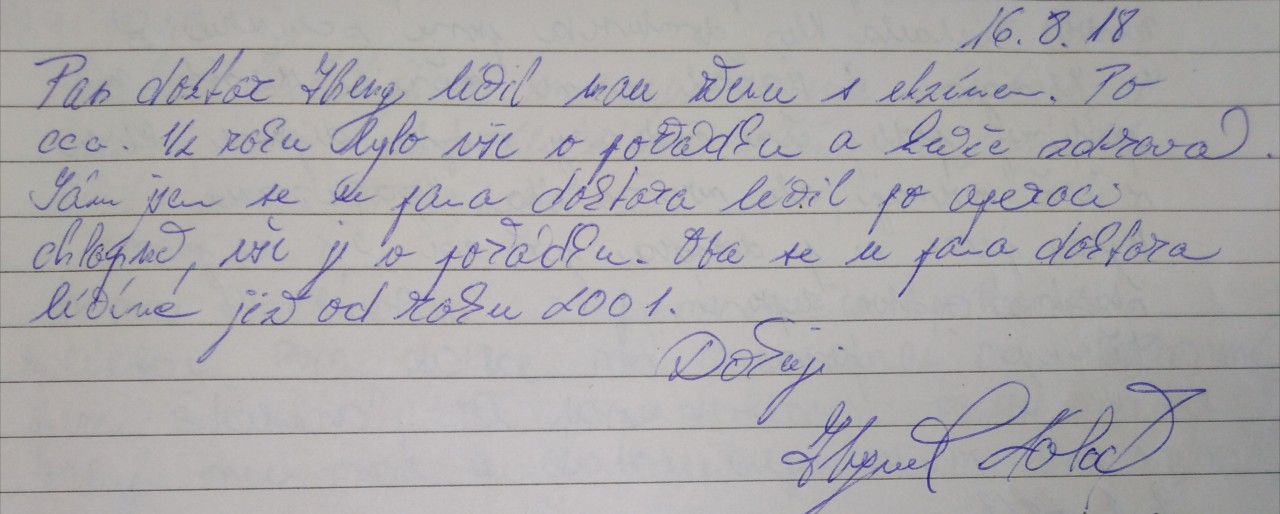 16.8.18
Pan doktor Zheng léčil mou ženu s ekzémem. Po
cca. 1/2 roku bylo vše v pořádku a kůže zdravá.
Sám jsem se u pana doktora léčil po operaci
chlopně, vše je v pořádku. Oba se u pana doktora
léčíme již od roku 2001.
Děkuji